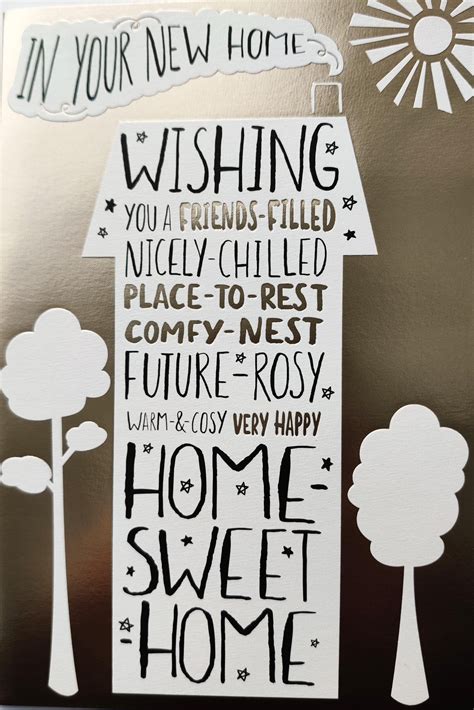 IN YOUR NEW HOME
WISHING
YOU A FRIENDS-FILLED
NICELY-CHILLED
PLACE-TO-REST
COMFY-NEST
FUTURE-ROSY
WARM-&-COSY VERY HAPPY
HOME-
SWEET
-HOME